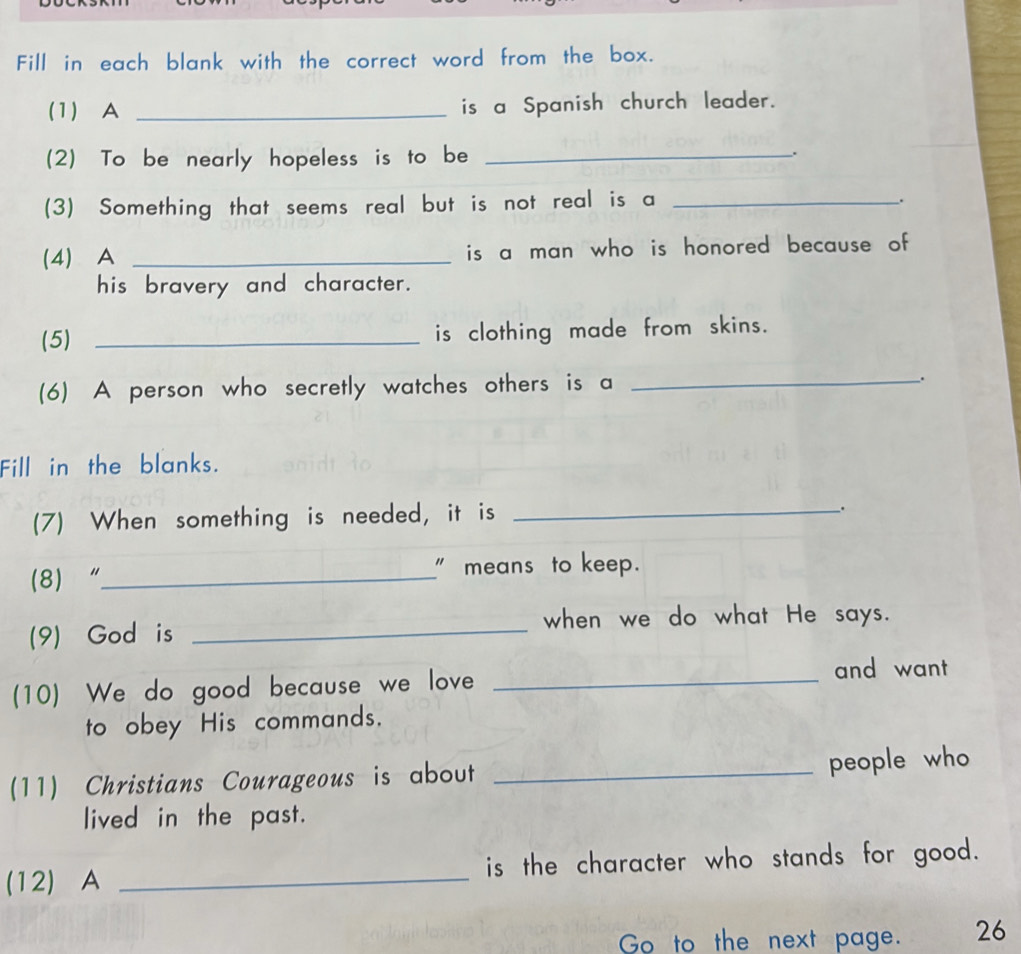 Fill in each blank with the correct word from the box.
(1) A ____________ is a Spanish church leader.
(2) To be nearly hopeless is to be ____________.
(3) Something that seems real but is not real is a ____________.
(4) A ____________ is a man who is honored because of
his bravery and character.
(5) ____________ is clothing made from skins.
(6) A person who secretly watches others is a ____________.
Fill in the blanks.
(7) When something is needed, it is ____________.
(8) "____________" means to keep.
(9) God is ____________ when we do what He says.
(10) We do good because we love ____________ and want
to obey His commands.
(11) Christians Courageous is about ____________ people who
lived in the past.
(12) A ____________ is the character who stands for good.
Go to the next page. 26